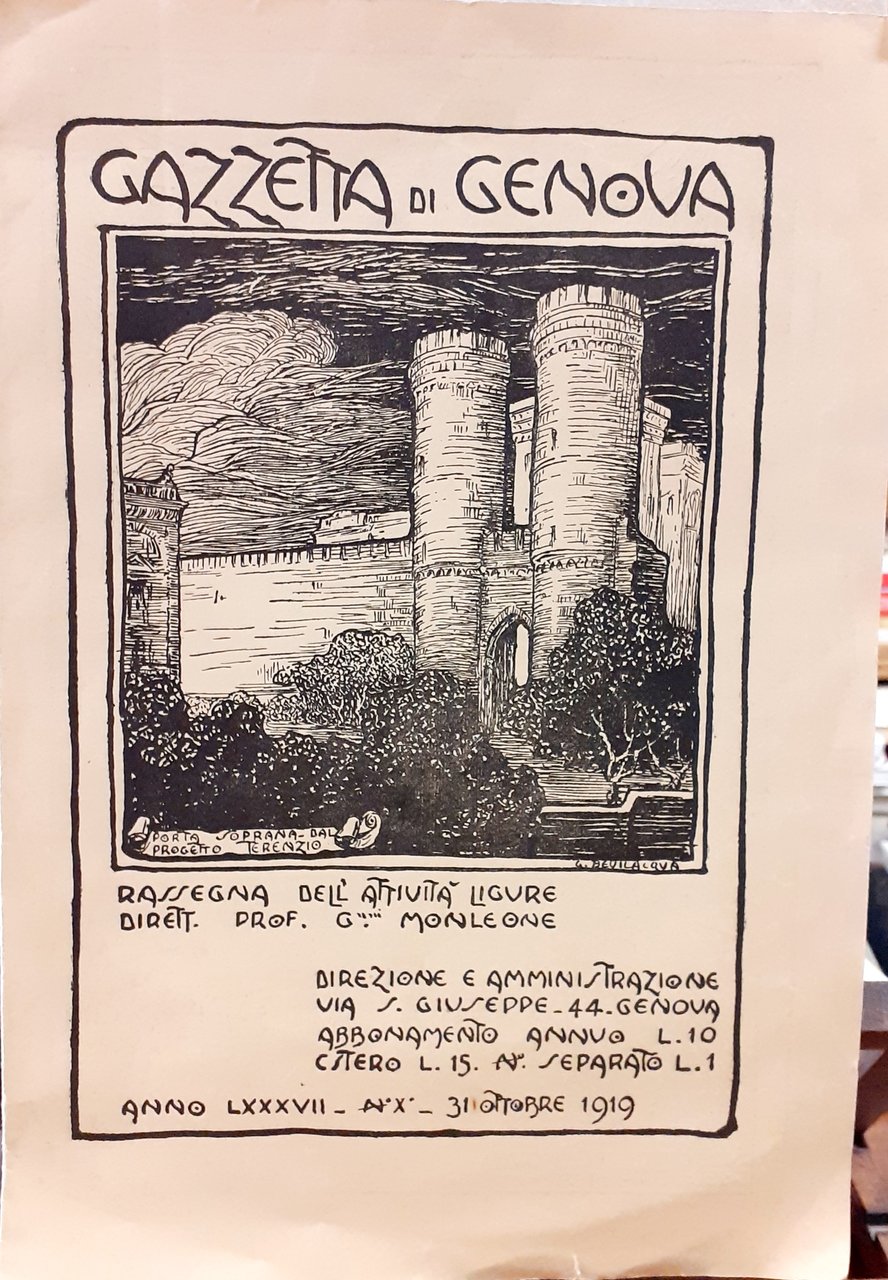 GAZZETTA DI GENOVA
PORTA SOPRANA - DAL
PROGETTO TERENZIO
G. BEVILACQUA
RASSEGNA DELL' ATTIVITA' LIGURE
DIRETT. PROF. G. MONLEONE
DIREZIONE E AMMINISTRAZIONE
VIA S. GIUSEPPE - 44 - GENOVA
ABBONAMENTO ANNUO L. 10
ESTERO L. 15. N°. SEPARATO L. 1
ANNO LXXXVII - N° X° - 31 OTTOBRE 1919